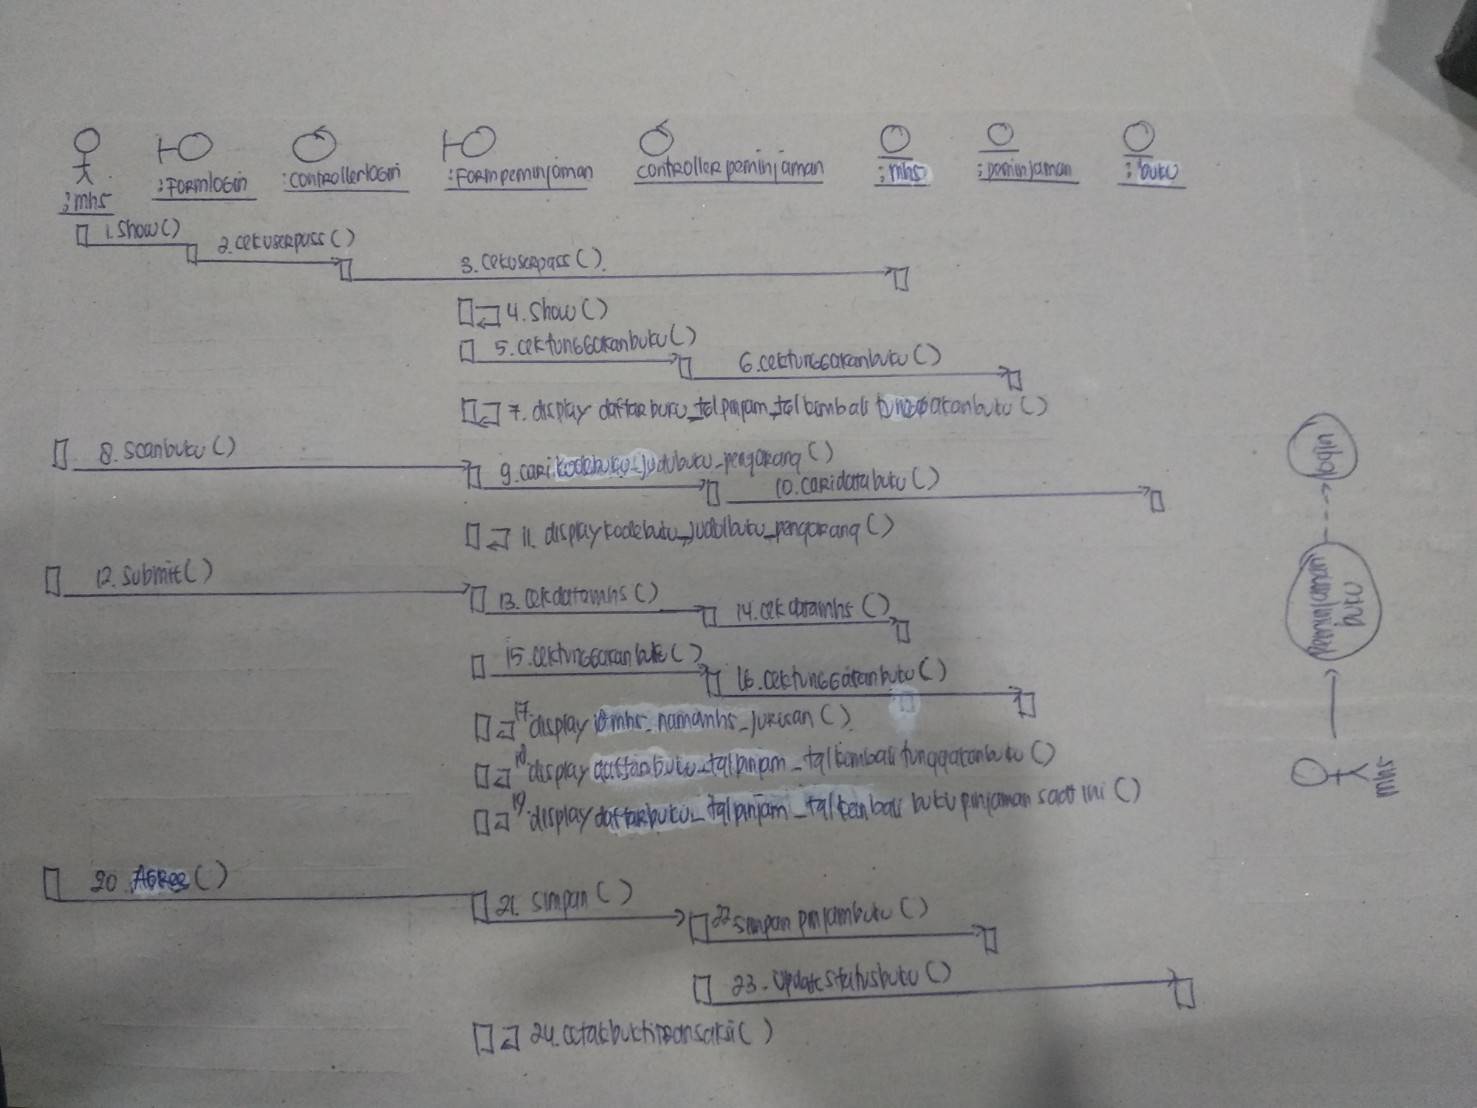 :mhs
:Formlogin
:controllerlogin
:Formpeminjaman
controllerpeminjaman
:mhs
:peminjaman
:buku
1.show()
2.cekuserpass()
3.cekuserpass()
4.show()
5.cektunggakanbuku()
6.cektunggakanbuku()
7.display daftar buku_tglpinjam_tglkembali tunggakanbuku()
8.scanbuku()
9.cari kodebuku_judulbuku_pengarang()
10.caridatabuku()
11.displaykodebuku_judulbuku_pengarang()
12.submit()
13.cekdatamhs()
14.cekdatamhs()
15.cektunggakanbuku()
16.cektunggakanbuku()
17.display idmhs_namamhs_jurusan()
18.display daftarbuku_tglpinjam_tglkembali tunggakanbuku()
19.display daftarbuku_tglpinjam_tglkembali buku pinjaman saat ini()
20.Agree()
21.simpan()
22.simpan pinjambuku()
23.updatestatusbuku()
24.cetakbuktitransaksi()
mhs
peminjaman
login